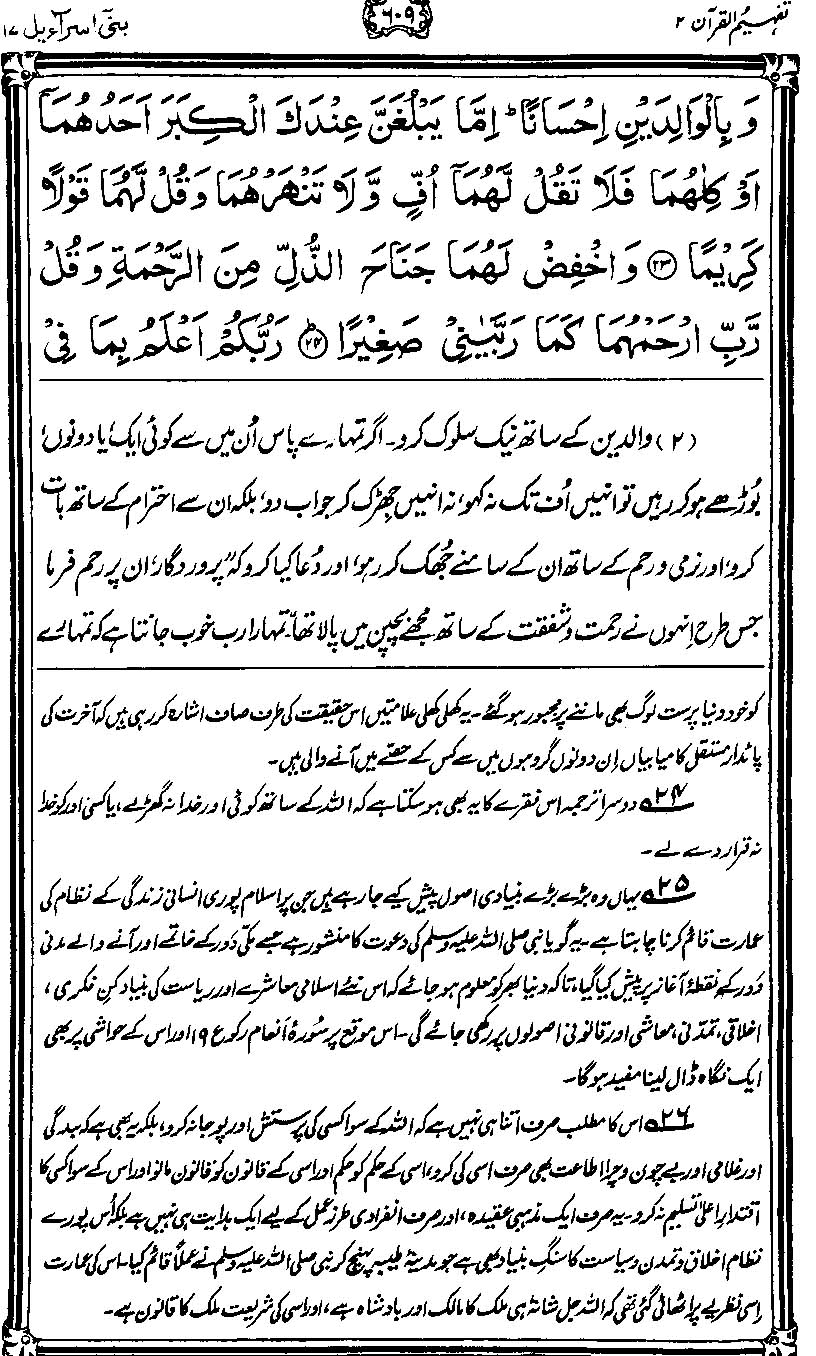 تفہیم القرآن ۲
۶۰۹
بنی اسرآءیل ۱۷
وَبِالْوَالِدَيْنِ اِحْسَانًا ؕ اِمَّا يَبْلُغَنَّ عِنْدَكَ الْكِبَرَ اَحَدُهُمَاۤ
اَوْ كِلٰهُمَا فَلَا تَقُلْ لَّهُمَاۤ اُفٍّ وَّلَا تَنْهَرْهُمَا وَقُلْ لَّهُمَا قَوْلًا
كَرِيْمًا ﴿۲۳﴾ وَاخْفِضْ لَهُمَا جَنَاحَ الذُّلِّ مِنَ الرَّحْمَةِ وَقُلْ
رَّبِّ ارْحَمْهُمَا كَمَا رَبَّيٰنِيْ صَغِيْرًا ﴿۲۴﴾ؕ رَبُّكُمْ اَعْلَمُ بِمَا فِيْ
(۲) والدین کے ساتھ نیک سلوک کرو۔ اگر تمہارے پاس اُن میں سے کوئی ایک، یا دونوں،
بُوڑھے ہو کر رہیں تو انہیں اُف تک نہ کہو، نہ انہیں جھِڑک کر جواب دو، بلکہ ان سے احترام کے ساتھ بات
کرو، اور نرمی و رحم کے ساتھ ان کے سامنے جُھک کر رہو، اور دُعا کیا کرو کہ ”پروردگار، ان پر رحم فرما
جس طرح اِنہوں نے رحمت و شفقت کے ساتھ مجھے بچپن میں پالا تھا“۔ تمہارا رب خوب جانتا ہے کہ تمہارے
کو خود دنیا پرست لوگ بھی ماننے پر مجبور ہو گئے۔ یہ کھلی کھلی علامتیں اس حقیقت کی طرف صاف اشارہ کر رہی ہیں کہ آخرت کی
پائدار مستقل کامیابیاں اِن دونوں گروہوں میں سے کس کے حصّے میں آنے والی ہیں۔
۲۴ دوسرا ترجمہ اس فقرے کا یہ بھی ہو سکتا ہے کہ اللہ کے ساتھ کوئی اور خدا نہ گھڑ لے، یا کسی اور کو خدا
نہ قرار دے لے۔
۲۵ یہاں وہ بڑے بڑے بنیادی اصول پیش کیے جا رہے ہیں جن پر اسلام پوری انسانی زندگی کے نظام کی
عمارت قائم کرنا چاہتا ہے۔ یہ گویا نبی صلی اللہ علیہ وسلم کی دعوت کا منشور ہے جسے مکّی دَور کے خاتمے اور آنے والے مدنی
دَور کے نقطۂ آغاز پر پیش کیا گیا، تاکہ دنیا بھر کو معلوم ہو جائے کہ اس نئے اسلامی معاشرے اور ریاست کی بنیاد کن فکری،
اخلاقی، تمدّنی، معاشی اور قانونی اصولوں پر رکھی جائے گی۔ اس موقع پر سُورۂ اَنعام رکوع ۱۹ اور اس کے حواشی پر بھی
ایک نگاہ ڈال لینا مفید ہوگا۔
۲۶ اس کا مطلب صرف اتنا ہی نہیں ہے کہ اللہ کے سوا کسی کی پرستش اور پوجا نہ کرو، بلکہ یہ بھی ہے کہ بندگی
اور غلامی اور بے چون و چرا اطاعت بھی صرف اسی کی کرو، اسی کے حکم کو حکم اور اسی کے قانون کو قانون مانو اور اس کے سوا کسی کا
اقتدارِ اعلیٰ تسلیم نہ کرو۔ یہ صرف ایک مذہبی عقیدہ، اور صرف انفرادی طرزِ عمل کے لیے ایک ہدایت ہی نہیں ہے بلکہ اُس پورے
نظامِ اخلاق و تمدن و سیاست کا سنگِ بنیاد بھی ہے جو مدینۂ طیبہ پہنچ کر نبی صلی اللہ علیہ وسلم نے عملاً قائم کیا۔ اس کی عمارت
اِسی نظریے پر اٹھائی گئی تھی کہ اللہ جل شانہٗ ہی ملک کا مالک اور بادشاہ ہے، اور اسی کی شریعت ملک کا قانون ہے۔